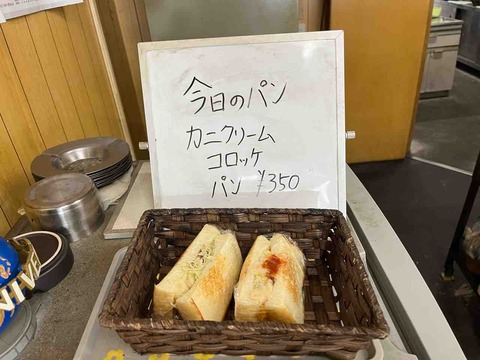 今日のパン
カニクリーム
コロッケ
パン ¥350